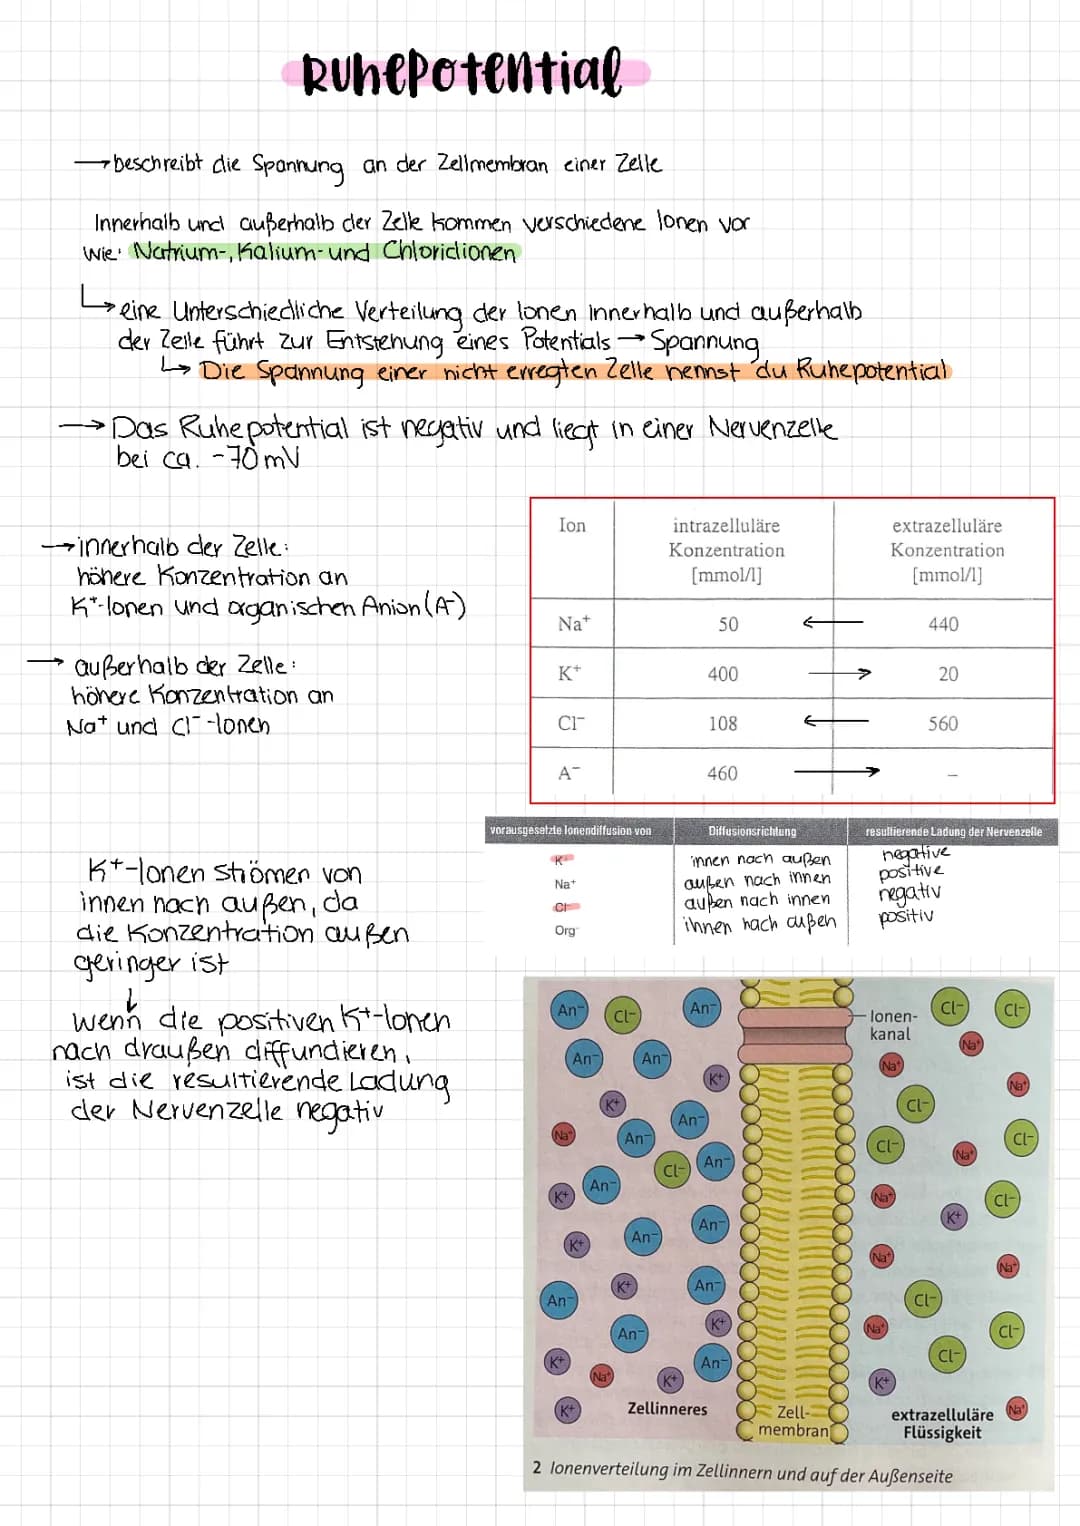 Ruhepotential
→ beschreibt die Spannung an der Zellmembran einer Zelle
Innerhalb und außerhalb der Zelle kommen verschiedene Ionen vor
wie: Natrium-, Kalium- und Chloridionen
↳ eine Unterschiedliche Verteilung der Ionen Innerhalb und außerhalb
der Zelle führt zur Entstehung eines Potentials → Spannung
↳ Die Spannung einer nicht erregten Zelle nennst du Ruhepotential
→ Das Ruhepotential ist negativ und liegt in einer Nervenzelle
bei ca. -70mV
→ innerhalb der Zelle:
höhere Konzentration an
K⁺-Ionen und organischen Anion (A⁻)
→ außerhalb der Zelle:
höhere Konzentration an
Na⁺ und Cl⁻-Ionen
Ion intrazelluläre extrazelluläre
Konzentration Konzentration
[mmol/l] [mmol/l]
Na⁺ 50 ← 440
K⁺ 400 → 20
Cl⁻ 108 ← 560
A⁻ 460 → –
vorausgesetzte Ionendiffusion von Diffusionsrichtung resultierende Ladung der Nervenzelle
K⁺ innen nach außen negative
Na⁺ außen nach innen positive
Cl⁻ außen nach innen negativ
Org⁻ innen nach außen positiv
K⁺-Ionen strömen von
innen nach außen, da
die Konzentration außen
geringer ist
↓
wenn die positiven K⁺-Ionen
nach draußen diffundieren,
ist die resultierende Ladung
der Nervenzelle negativ
An⁻ Cl⁻ An⁻ Cl⁻ Cl⁻
Ionen-
kanal
Na⁺
An⁻ An⁻ Na⁺
K⁺ Na⁺
K⁺ Cl⁻
An⁻
Na⁺ An⁻ Cl⁻ Cl⁻
Cl⁻ An⁻ Na⁺
K⁺ An⁻ Na⁺ Cl⁻
An⁻ K⁺
K⁺ An⁻ Na⁺
Na⁺
K⁺ An⁻
An⁻ Cl⁻
An⁻ K⁺ Na⁺ Cl⁻
K⁺ An⁻ Cl⁻
Na⁺ K⁺ K⁺
K⁺ Zellinneres Zell- extrazelluläre Na⁺
membran Flüssigkeit
2 Ionenverteilung im Zellinnern und auf der Außenseite